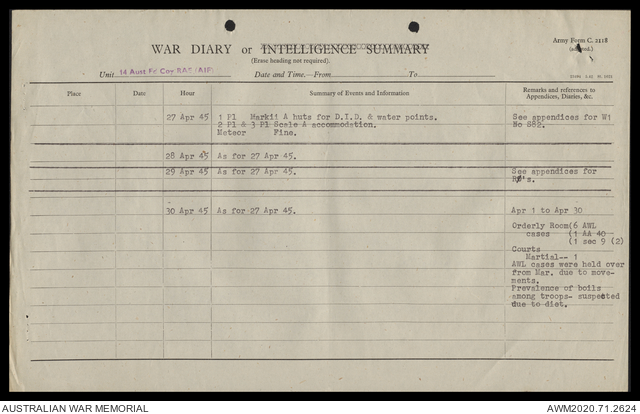 WAR DIARY or INTELLIGENCE SUMMARY
(Erase heading not required).
Army Form C. 2118
Unit 14 Aust Fd Coy RAE (AIF) Date and Time.—From To
Place Date Hour Summary of Events and Information Remarks and references to Appendices, Diaries, &c.
27 Apr 45 1 Pl Markii A huts for D.I.D. & water points. See appendices for W1
2 Pl & 3 Pl Scale A accommodation. No S82.
Meteor Fine.
28 Apr 45 As for 27 Apr 45.
29 Apr 45 As for 27 Apr 45. See appendices for
RO's.
30 Apr 45 As for 27 Apr 45. Apr 1 to Apr 30
Orderly Room(6 AWL
cases (1 AA 40
(1 sec 9 (2)
Courts
Martial-- 1
AWL cases were held over
from Mar. due to move-
ments.
Prevalence of boils
among troops- suspected
due to diet.
AUSTRALIAN WAR MEMORIAL AWM2020.71.2624